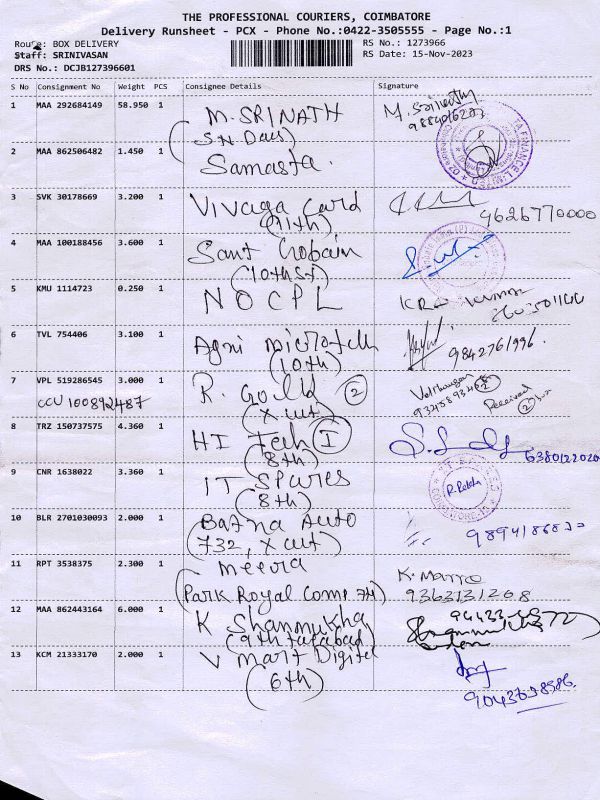 THE PROFESSIONAL COURIERS, COIMBATORE
Delivery Runsheet - PCX - Phone No.:0422-3505555 - Page No.:1
Route: BOX DELIVERY RS No.: 1273966
Staff: SRINIVASAN RS Date: 15-Nov-2023
DRS No.: DCJB127396601
S No Consignment No Weight PCS Consignee Details Signature
1 MAA 292684149 58.950 1 M. SRINATH M. Srinath
2 MAA 862506482 1.450 1 Samasta.
3 SVK 30178669 3.200 1 Vivaga Card
(11th) 9626770000
4 MAA 100188456 3.600 1 Sant Gobain
(10th St)
5 KMU 1114723 0.250 1 NOCPL
6 TVL 754406 3.100 1 Agni
(10th) 9842761996.
7 VPL 519286545 3.000 1 R. Gold (2)
CCU 100892487 (X cut) Received (2) box
8 TRZ 150737575 4.360 1 HI Tech (I)
(8th) 6380122020
9 CNR 1638022 3.360 1 IT Spares
(8th)
10 BLR 2701030093 2.000 1 Batna Auto
(732, X cut)
11 RPT 3538375 2.300 1 Meera K.
(Park Royal Comp. 7th) 9363131208
12 MAA 862443164 6.000 1 K Shanmukha
(9th tatabad)
13 KCM 21333170 2.000 1 V Mart Digitel
(6th)